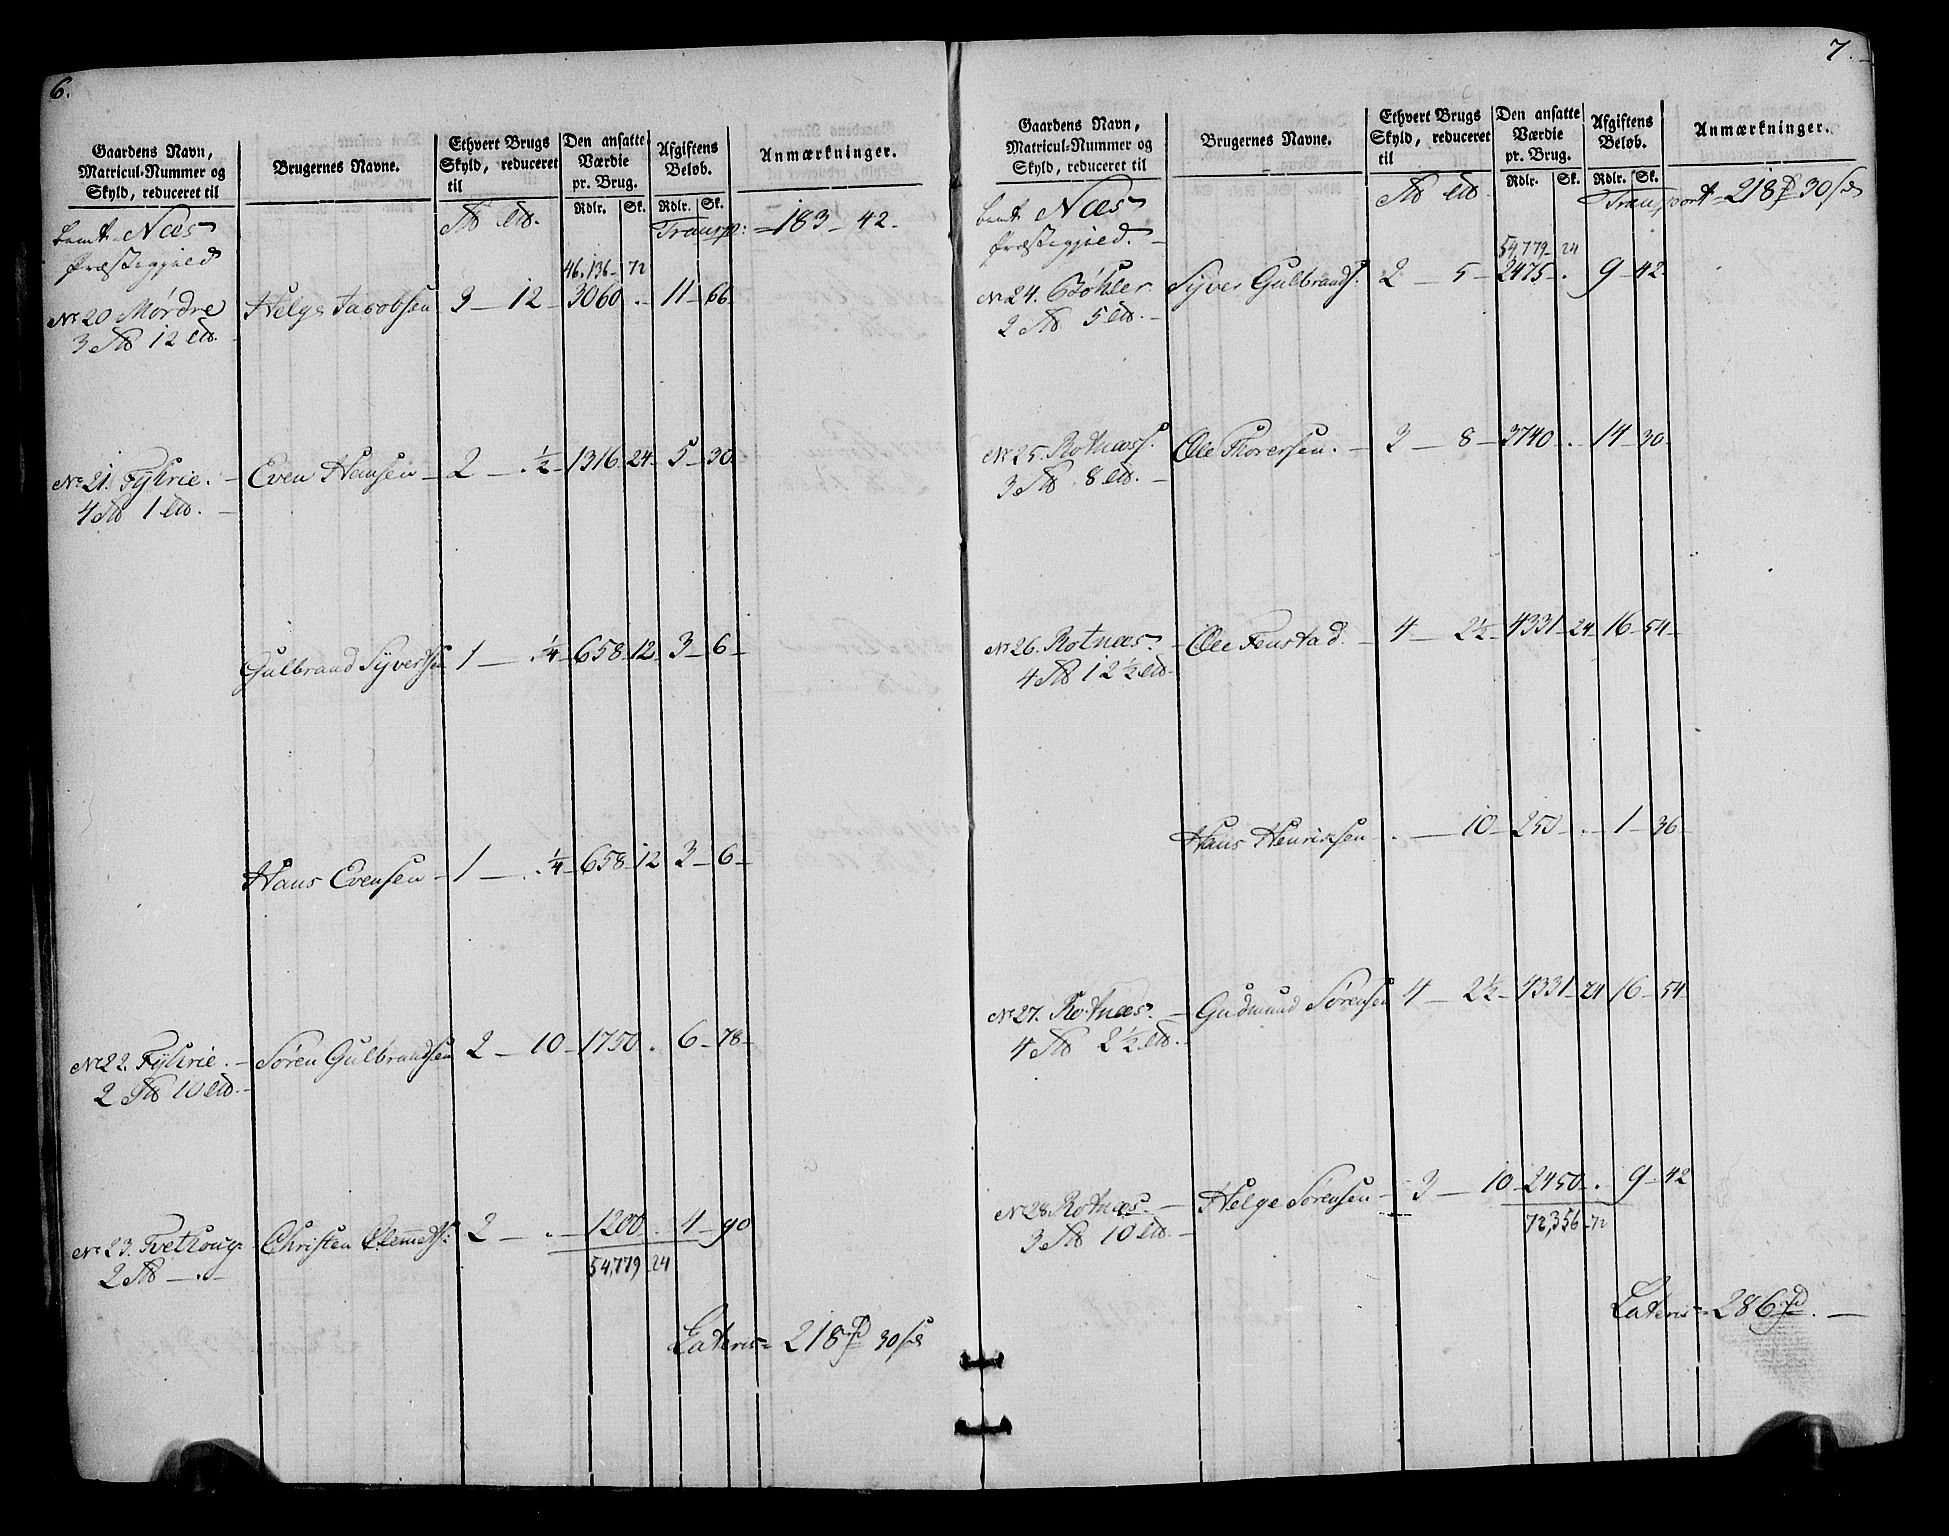 6.
Gaardens Navn, Matricul-Nummer og Skyld, reduceret til
Brugernes Navne.
Ethvert Brugs Skyld, reduceret til
Den ansatte Værdie pr. Brug.
Rdlr. Sk.
Afgiftens Beløb.
Rdlr. Sk.
Anmærkninger.
Næs Præstegjield
Transp: = 183 - 42.
46,136 - 72
No 20 Mørdre Helge Jacobsen 3 - 12 - 3060 - . - 11 - 66
3 12
No 21. Even Hansen - 2 - . ½ - 1316 - 24 - 5 - 30
4 1
Gulbrand Syversen 1 - . ¼ - 658 - 12 - 3 - 6 -
Hans Evensen - 1 - . ¼ - 658 - 12 3 - 6 -
No 22. Søren Gulbrandsen 2 - 10 - 1750 . 6 - 78 -
2 10
No 23. Tvethoug Christen Clemets: 2 - . - 1200 . 4 - 90
2 - . -
54,779 - 24
Lateris = 218 30
7.
Gaardens Navn, Matricul-Nummer og Skyld, reduceret til
Brugernes Navne.
Ethvert Brugs Skyld, reduceret til
Den ansatte Værdie pr. Brug.
Rdlr. Sk.
Afgiftens Beløb.
Rdlr. Sk.
Anmærkninger.
Næs Præstegjield. -
Transport = 218 30
54,779 - 24
No 24. Bøhler Syver Gulbrands. 2 - 5 - 2475 - . 9 - 42
2 5
No 25. Rotnæs. Ole Thorersen. - 3 - 8 - 3740 - . 14 - 30
3 8
No 26. Rotnæs. - Ole Fenstad - 4 - 2½ - 4331 - 24 - 16 - 54 -
4 12½
Hans Henrixsen - . - 10 - 250 - . - 1 - 36
No 27. Rotnæs. - Gudmund Sørensen 4 - 2½ - 4331 - 24 16 - 54
4 2½
No 28. Rotnæs. - Helge Sørensen - 3 - 10 - 2450 - . 9 - 42
3 10
72,356 - 72
Lateris = 286 . -